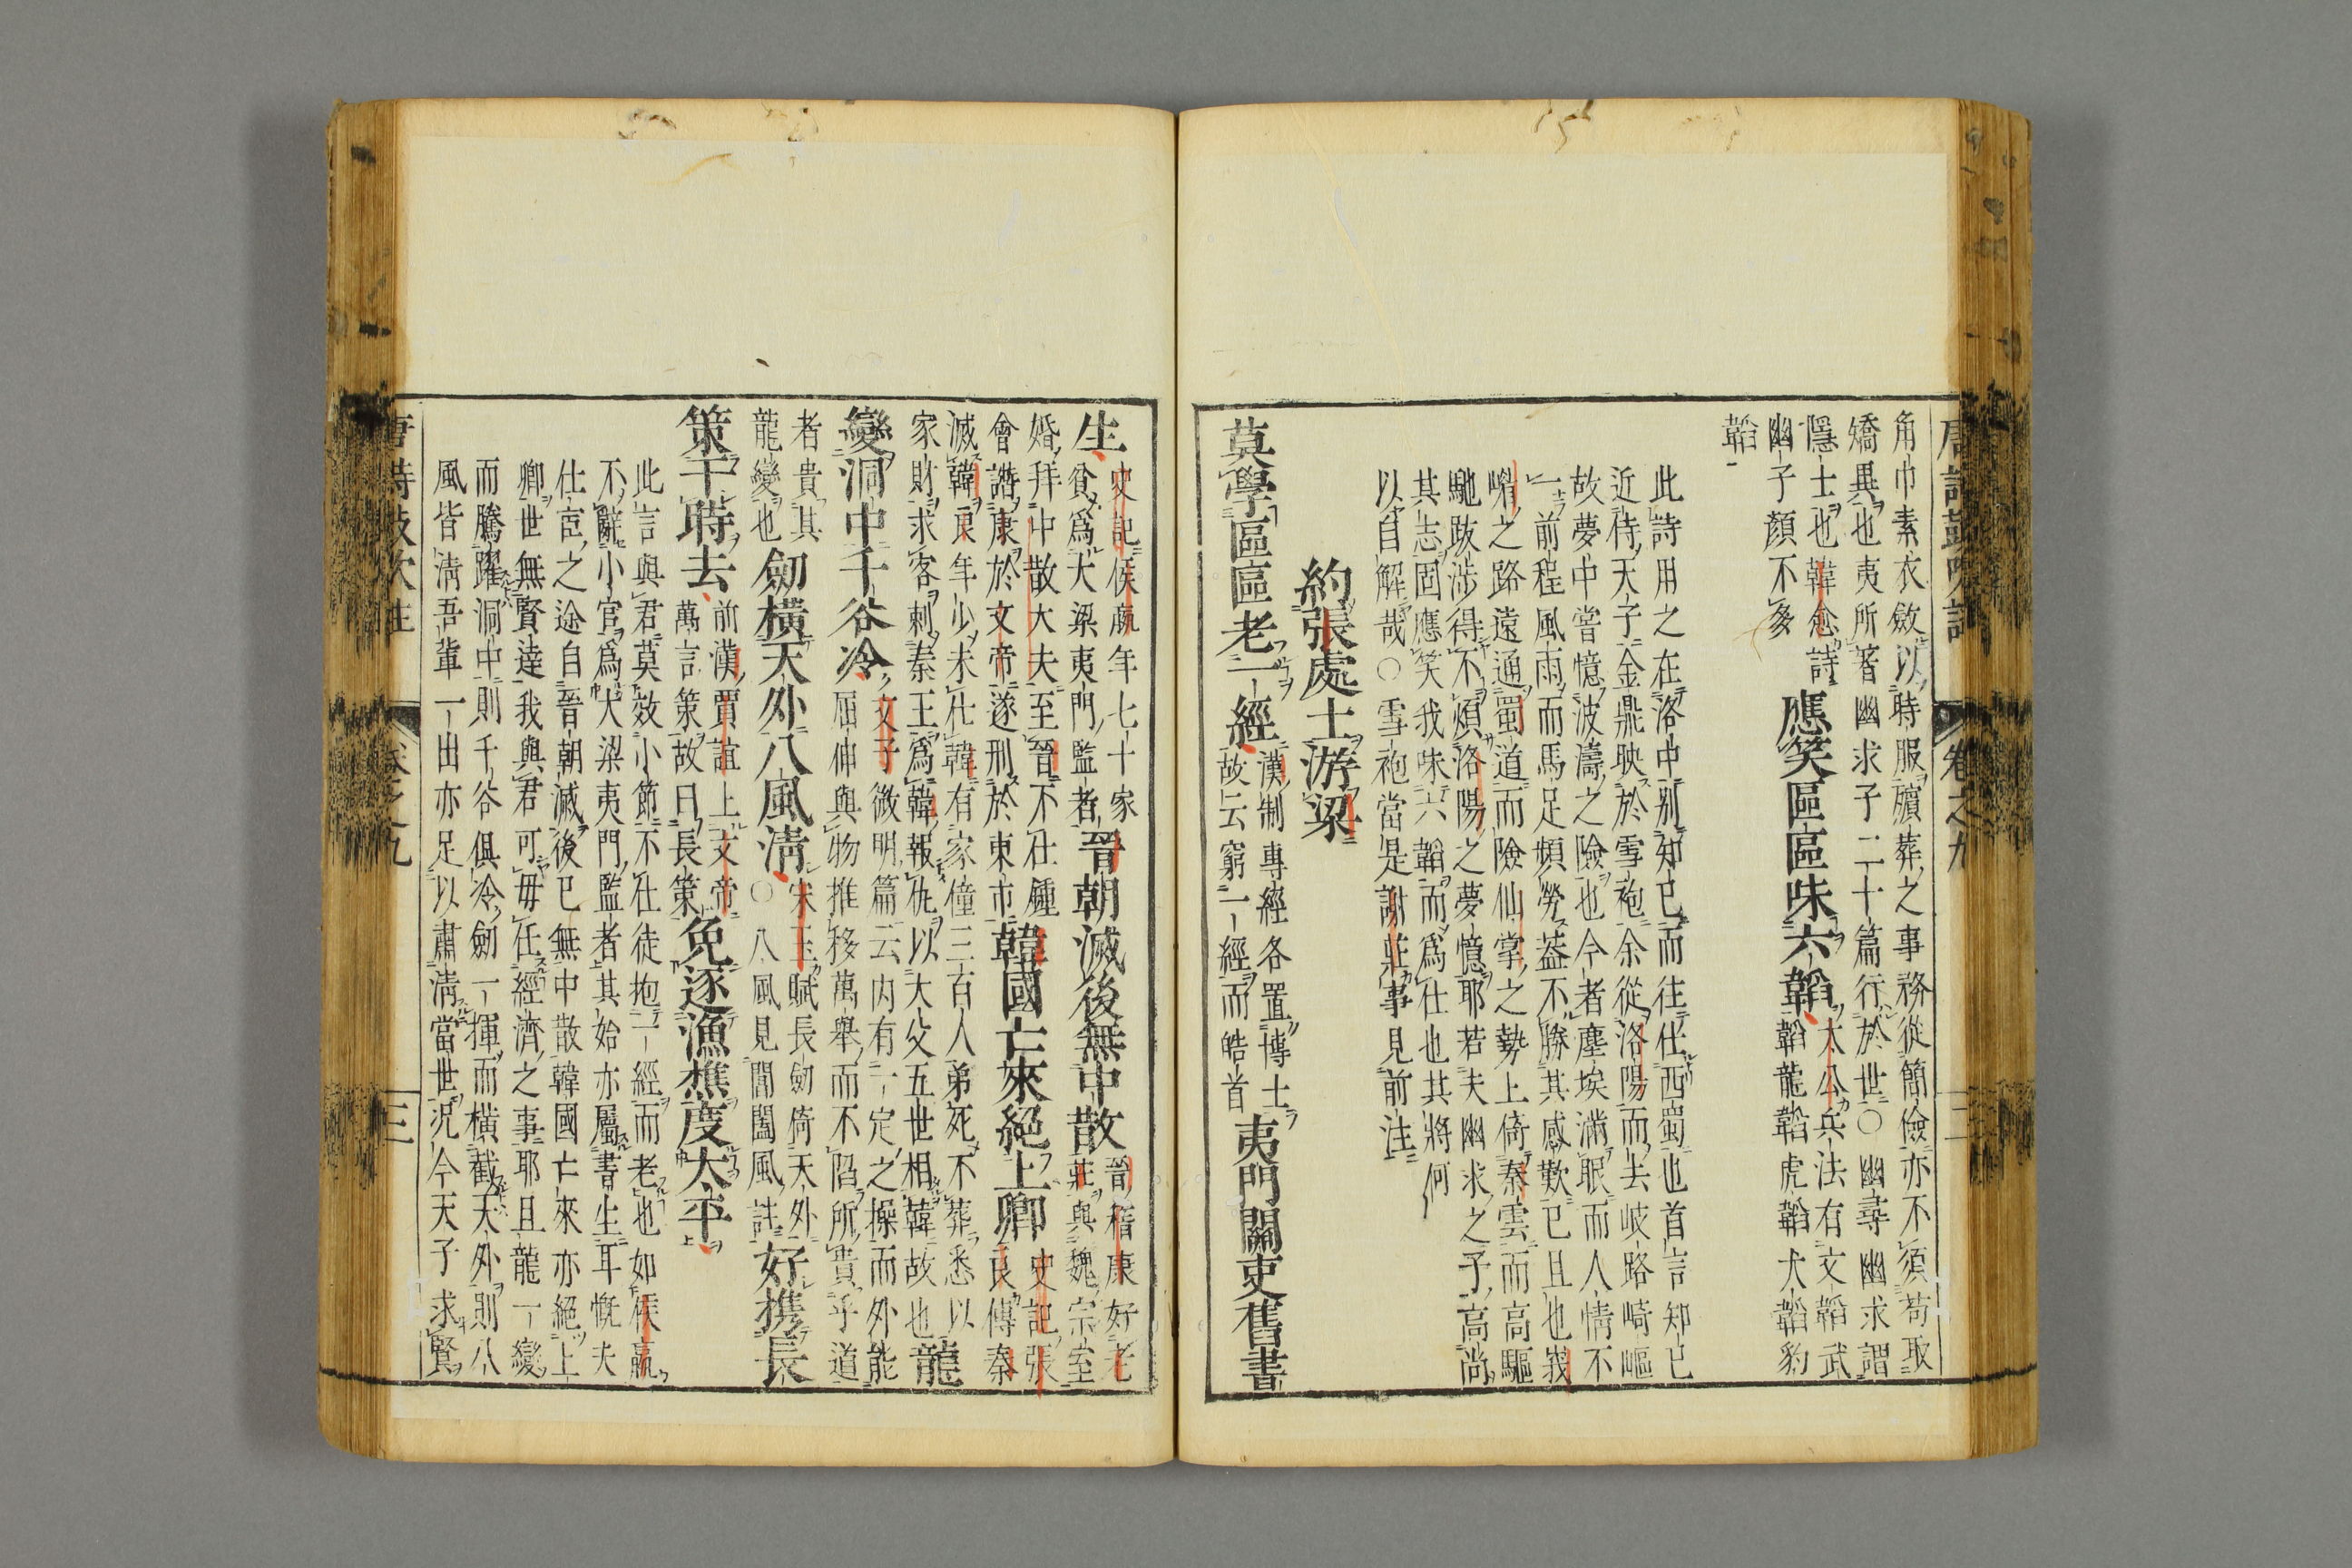 角巾素衣斂以時服殯葬之事務從簡儉亦不須苟取
矯異也夷所著幽求子二十篇行於世○幽尋幽求謂
隱士也韓愈詩
幽子顏不多
應笑區區味六韜
太公兵法有文韜武
韜龍韜虎韜犬韜豹
韜
此詩用之在洛中別知已而往仕西蜀也首言知已
近侍天子金鼎映於雪袍余從洛陽而去岐路崎嶇
故夢中嘗憶波濤之險也今者塵埃滿眠而人情不
一前程風雨而馬足頻勞蓋不勝其感歎已且也峩
嵋之路遠通蜀道而險仙掌之勢上倚秦雲而高驅
馳跋涉得不煩洛陽之夢憶耶若夫幽求之子高尚
其志固應笑我味六韜而爲仕也其將何
以自解哉○雪袍當是謝莊事見前注
約張處士游梁
莫學區區老一經
漢制專經各置博士
故云窮一經而皓首
夷門關吏舊書
生
史記侯嬴年七十家
貧爲大梁夷門監者
晉朝滅後無中散
晉嵇康好老
莊與魏宗室
婚拜中散大夫至晉不仕鍾
會譖康於文帝遂刑於東市
韓國亡來絕上卿
史記張
良傳秦
滅韓良年少未仕韓有家僮三百人弟死不葬悉以
家財求客刺秦王爲韓報仇以大父五世相韓故也
龍
變洞中千谷冷
文子微明篇云內有一定之操而外能
屈伸與物推移萬舉而不陷所貴乎道
者貴其
龍變也
劒橫天外八風清
宋玉賦長劒倚天外
○八風見閶闔風註
好携長
策干時去
前漢賈誼上文帝
萬言策故曰長策
免逐漁樵度太平
此言與君莫效小節不仕徒抱一經而老也如侯嬴
不辭小官爲大梁夷門監者其始亦屬書生耳慨夫
仕宦之途自晉朝滅後已無中散韓國亡來亦絕上
卿世無賢達我與君可毋任經濟之事耶且龍一變
而騰躍洞中則千谷俱冷劒一揮而橫截天外則八
風皆清吾輩一出亦足以肅清當世況今天子求賢
唐詩鼓吹註
卷之九
三